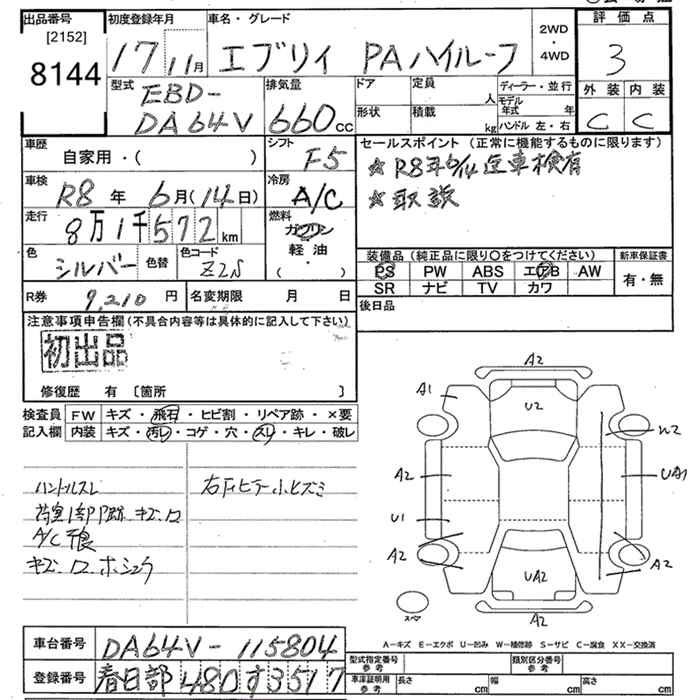 出品番号 初度登録年月 車名・グレード 2WD・4WD 評価点
[2152]
8144 17 11月 エブリィ PAハイルーフ 3
型式 EBD-DA64V 排気量 660cc ドア 形状 定員 人 積載 kg ディーラー・並行 モデル年式 年 ハンドル 左・右 外装 C 内装 C
車歴 自家用・( ) シフト F5
セールスポイント (正常に機能するものに限ります)
☆ R8年6/14迄車検有
☆ 取説
車検 R8年 6月(14日) 冷房 A/C
走行 8万1千572km 燃料 ガソリン 軽油 ( ・ )
色 シルバー 色替 色コード Z2S
装備品 (純正品に限り○をつけてください) 新車保証書
PS PW ABS エアB AW 有・無
SR ナビ TV カワ
R券 9,210円 名変期限 月 日 後日品
注意事項申告欄 (不具合内容等は具体的に記入して下さい)
初出品
修復歴 有 〔箇所 〕
検査員 FW キズ・飛石・ヒビ割・リペア跡・×要
記入欄 内装 キズ・汚レ・コゲ・穴・スレ・キレ・破レ
ハンドルスレ 右Fピラー小ヒズミ
A/C不良
A2
A1 U2 W2
A2 UA1
U1
A2 UA2 A2
スペア A2
A-キズ E-エクボ U-凹み W-補修跡 S-サビ C-腐食 XX-交換済
車台番号 DA64V-115804
登録番号 春日部 480 す 3517
型式指定番号 参考 類別区分番号 参考
車庫証明用 参考 長さ cm 幅 cm 高さ cm